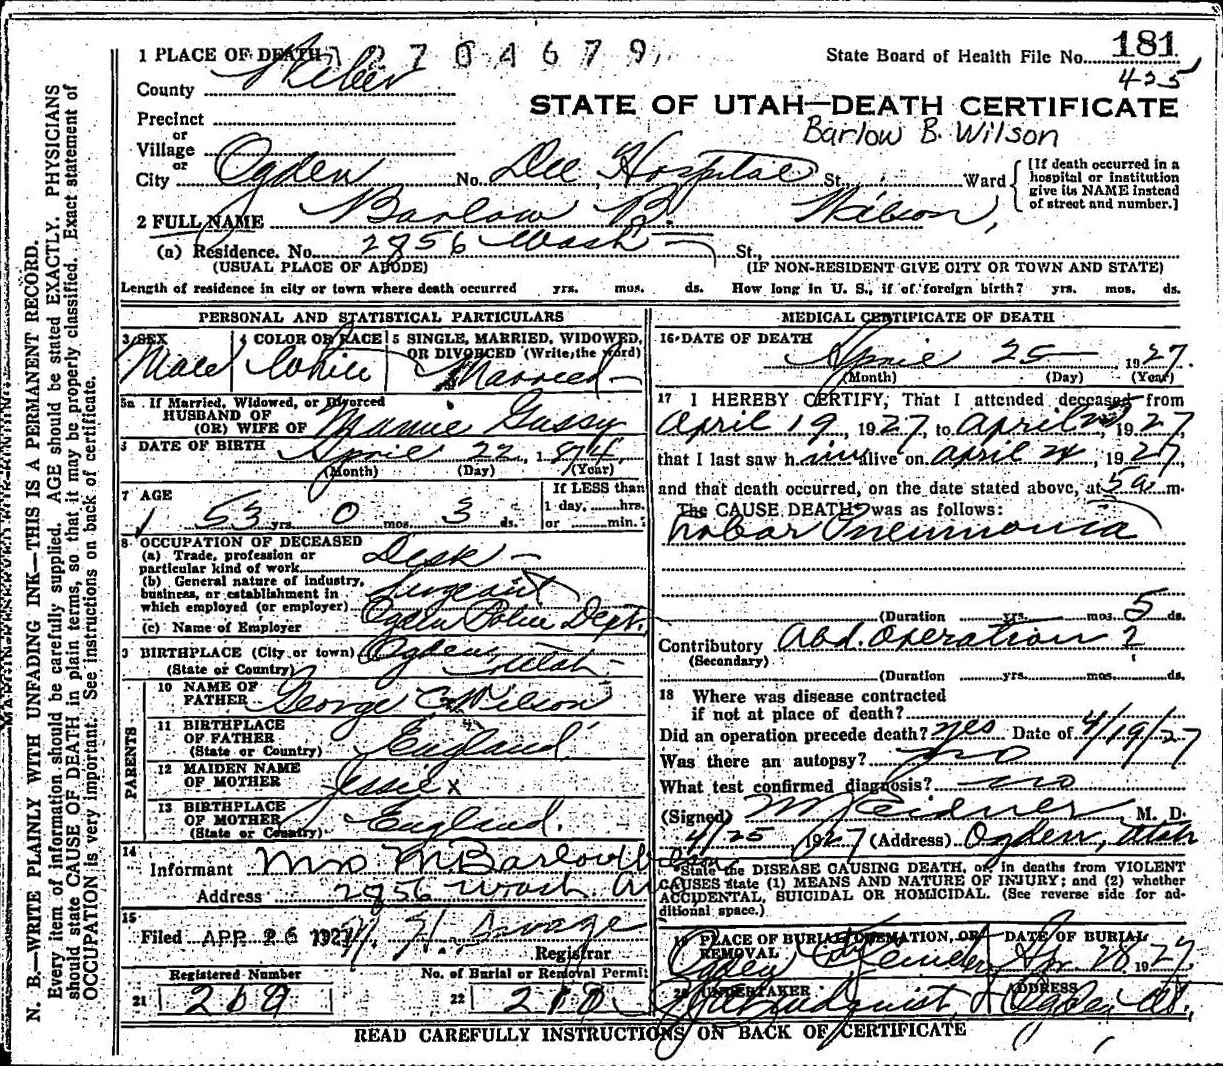 1 PLACE OF DEATH 2704679 State Board of Health File No. 181
County Weber 425
STATE OF UTAH—DEATH CERTIFICATE
Precinct
or
Village
Barlow B. Wilson
or
City Ogden No. Dee Hospital St. Ward [If death occurred in a hospital or institution give its NAME instead of street and number.]
2 FULL NAME Barlow B. Wilson,
(a) Residence. No. 2856 Wash St.,
(USUAL PLACE OF ABODE) (IF NON-RESIDENT GIVE CITY OR TOWN AND STATE)
Length of residence in city or town where death occurred yrs. mos. ds. How long in U. S., if of foreign birth? yrs. mos. ds.
PERSONAL AND STATISTICAL PARTICULARS
3 SEX Male
4 COLOR OR RACE White
5 SINGLE, MARRIED, WIDOWED, OR DIVORCED (Write the word) Married
5a If Married, Widowed, or Divorced
HUSBAND OF
(OR) WIFE OF Minnie Gussy
DATE OF BIRTH April 22, 1874
(Month) (Day) (Year)
7 AGE 53 yrs. 0 mos. 3 ds.
If LESS than
1 day, hrs.
or min.
8 OCCUPATION OF DECEASED
(a) Trade, profession or
particular kind of work Desk
(b) General nature of industry,
business, or establishment in
which employed (or employer)
(c) Name of Employer Ogden Police Dept.
BIRTHPLACE (City or town) Ogden
(State or Country) Utah
PARENTS
10 NAME OF
FATHER George C. Wilson
11 BIRTHPLACE
OF FATHER
(State or Country) England
12 MAIDEN NAME
OF MOTHER Jessie x
13 BIRTHPLACE
OF MOTHER
(State or Country) England.
14
Informant Mrs M Barlow Wilson
Address 2856 Wash. Av
15
Filed APR 26 1927 Savage
Registrar
Registered Number
21
No. of Burial or Removal Permit
22
MEDICAL CERTIFICATE OF DEATH
16 DATE OF DEATH
April 25 1927
(Month) (Day) (Year)
17 I HEREBY CERTIFY, That I attended deceased from
April 19, 1927, to April 1927,
that I last saw him alive on April 24, 1927
and that death occurred, on the date stated above, at 5 a m.
The CAUSE DEATH was as follows:
Lobar Pneumonia
(Duration yrs. mos. 5 ds.
Contributory Abd. Operation ?
(Secondary)
(Duration yrs. mos. ds.
18 Where was disease contracted
if not at place of death?
Did an operation precede death? yes Date of 4/19/27
Was there an autopsy? no
What test confirmed diagnosis? no
(Signed) M. D.
4/25 1927 (Address) Ogden, Utah
State the DISEASE CAUSING DEATH, or, in deaths from VIOLENT
CAUSES state (1) MEANS AND NATURE OF INJURY; and (2) whether
ACCIDENTAL, SUICIDAL OR HOMICIDAL. (See reverse side for ad-
ditional space.)
19 PLACE OF BURIAL, CREMATION, OR REMOVAL
DATE OF BURIAL
Ogden Ap. 28 1927
20 UNDERTAKER ADDRESS
Ogden Ut.
READ CAREFULLY INSTRUCTIONS ON BACK OF CERTIFICATE
N. B.—WRITE PLAINLY WITH UNFADING INK—THIS IS A PERMANENT RECORD.
Every item of information should be carefully supplied. AGE should be stated EXACTLY. PHYSICIANS
should state CAUSE OF DEATH in plain terms, so that it may be properly classified. Exact statement of
OCCUPATION is very important. See instructions on back of certificate.